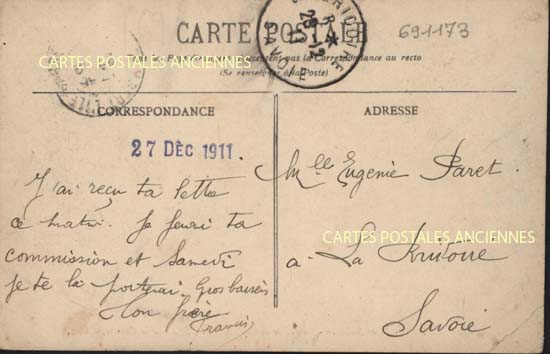 691173
CARTE POSTALE
pas la Correspondance au recto
(Se renseigner à la Poste)
SAVOIE
CARTES POSTALES ANCIENNES
CORRESPONDANCE
ADRESSE
27 DÉC 1911
Mlle Eugenie Paret
J'ai reçu ta lettre
ce matin. Je ferai ta
CARTES POSTALES ANCIENNES
commission et Samedi
a La
je te la porterai Gros baisers
CARTES POSTALES ANCIENNES
Ton frère
Francis
Savoie